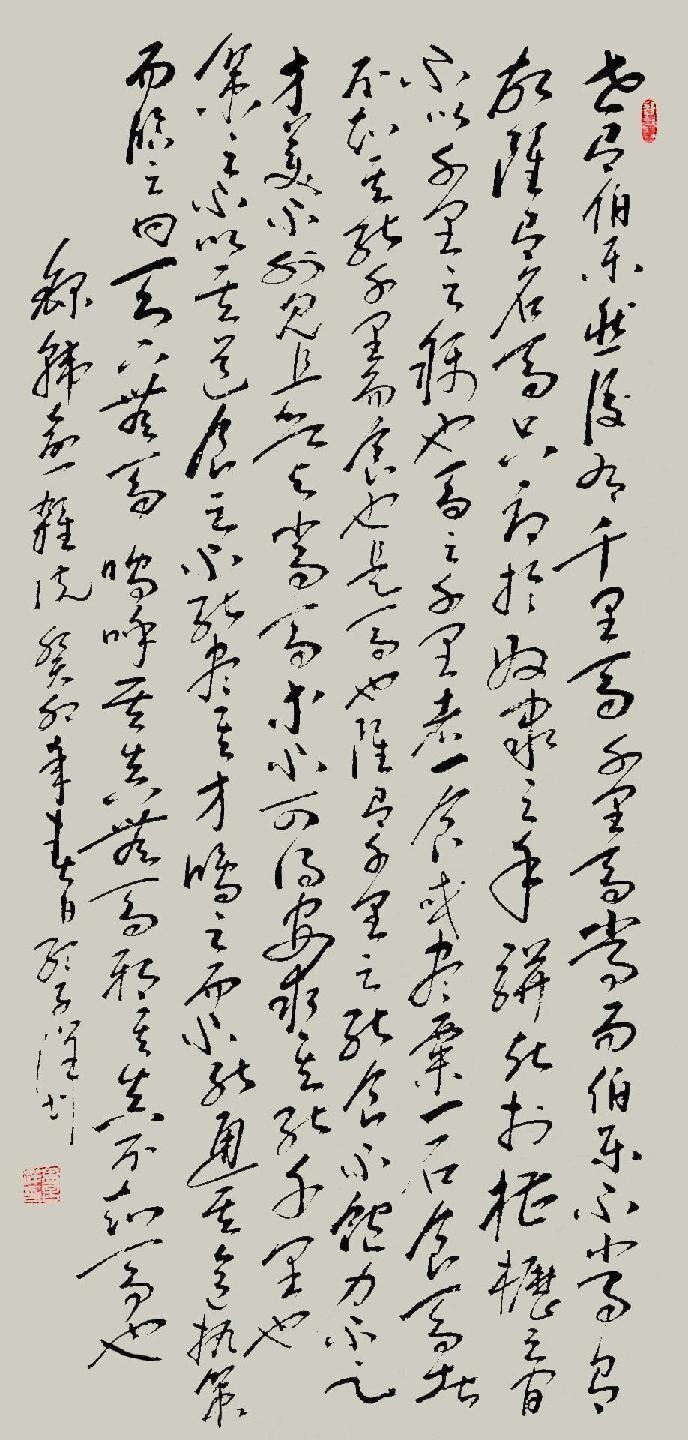 世有伯乐然后有千里马千里马常有而伯乐不常有
故虽有名马只辱于奴隶之手骈死于槽枥之间
不以千里之称也马之千里者一食或尽粟一石食马者
不知其能千里而食也是马也虽有千里之能食不饱力不足
才美不外见且欲与常马等不可得安求其能千里也
策之不以其道食之不能尽其才鸣之而不能通其意执策
而临之曰天下无马呜呼其真无马邪其真不知马也
录韩愈杂说癸卯年春日